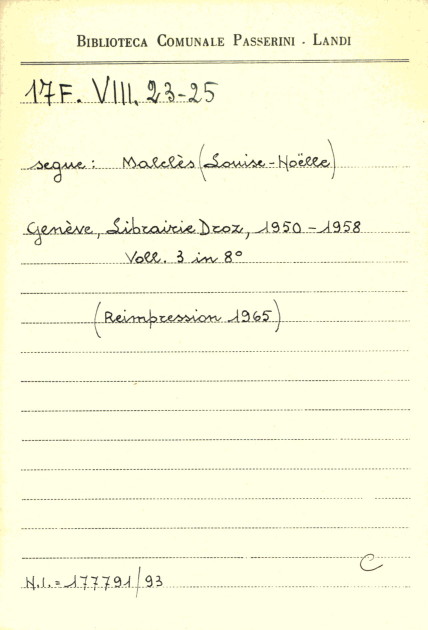 BIBLIOTECA COMUNALE PASSERINI - LANDI
17F. VIII. 23-25
segue: Malclès (Louise-Noëlle)
Genève, Librairie Droz, 1950-1958
Voll. 3 in 8°
(Reimpression 1965)
C
N.I. = 177791/93